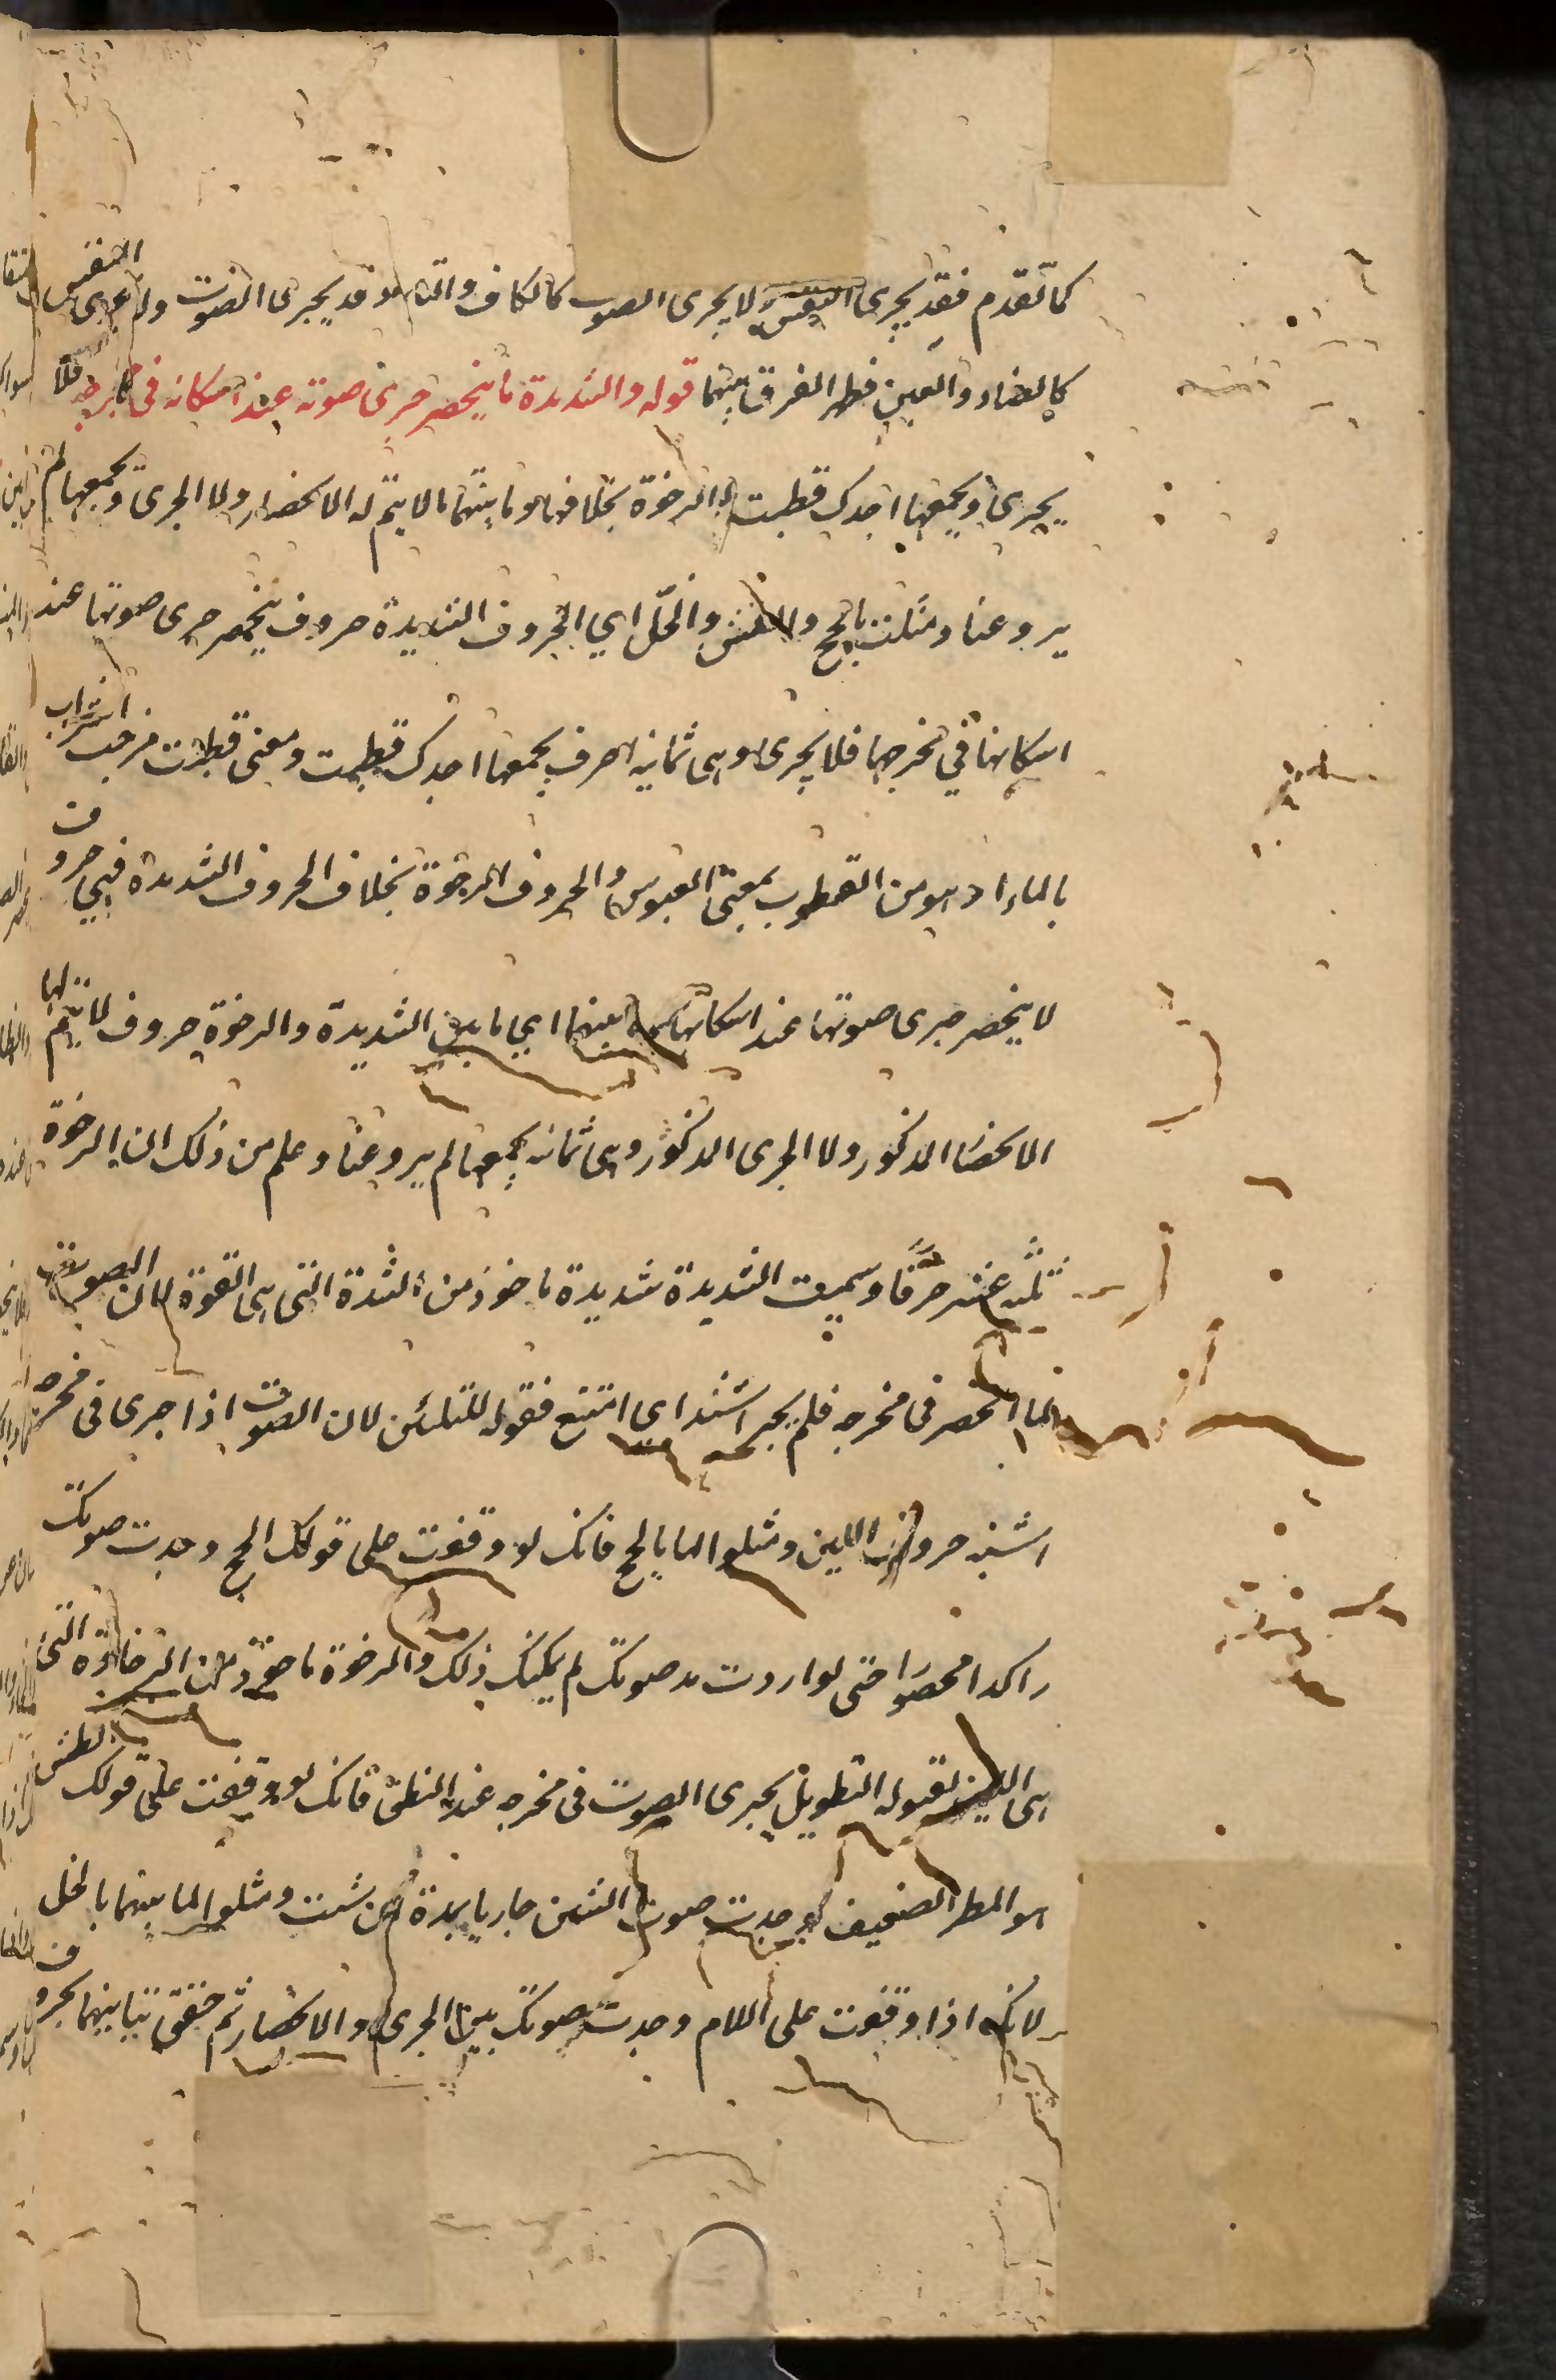 كما تقدم فقد يجرى النفس ولا يجرى الصوت كالكاف والتاء وقد يجرى الصوت ولم يجرى النفس
كالضاد والعين فظهر الفرق بينهما قوله والشديدة ما ينحصر جرى صوته عند اسكانه في مخرجه فلا
يجرى ويجمعها اجدك قطبت والرخوة بخلافها وما بينهما ما لا يتم له الانحصار ولا الجرى ويجمعها لم
يروعنا ومثلت بالحج والطش والخل اي الحروف الشديدة حروف ينحصر جرى صوتها عند
اسكانها في مخرجها فلا يجرى وهى ثمانية احرف يجمعها اجدك قطبت ومعنى قطبت مزجت الشراب
بالماء او هو من القطوب بمعنى العبوس والحروف الرخوة بخلاف الحروف الشديدة فهي حروف
لا ينحصر جرى صوتها عند اسكانها وما بينهما اي ما بين الشديدة والرخوة حروف لا يتم لها
الانحصار المذكور ولا الجرى المذكور وهى ثمانية يجمعها لم يروعنا وعلم من ذلك ان الرخوة
ثلثة عشر حرفا وسميت الشديدة شديدة ماخوذ من الشدة التى هى القوة لان الصوت
لما انحصر فى مخرجه فلم يجر اشتد اى امتنع فقوله للتلئن لان الصوت اذا جرى فى مخرجه
اشبه حروف اللين ومثلوا لها بالحج فانك لو وقفت على قولك الحج وجدت صوتك
راكدا محصورا حتى لو اردت مد صوتك لم يمكنك ذلك والرخوة ماخوذ من الرخاوة التى
هى اللين لقبوله التطويل يجرى الصوت فى مخرجه عند النطق فانك لو وقفت على قولك الطش
هو المطر الضعيف لوجدت صوت الشين جاريا يمده ان شئت ومثلوا لما بينهما بالخل
لانك اذا وقفت على اللام وجدت صوتك بين الجرى والانحصار ثم حقق تباينهما بحروف